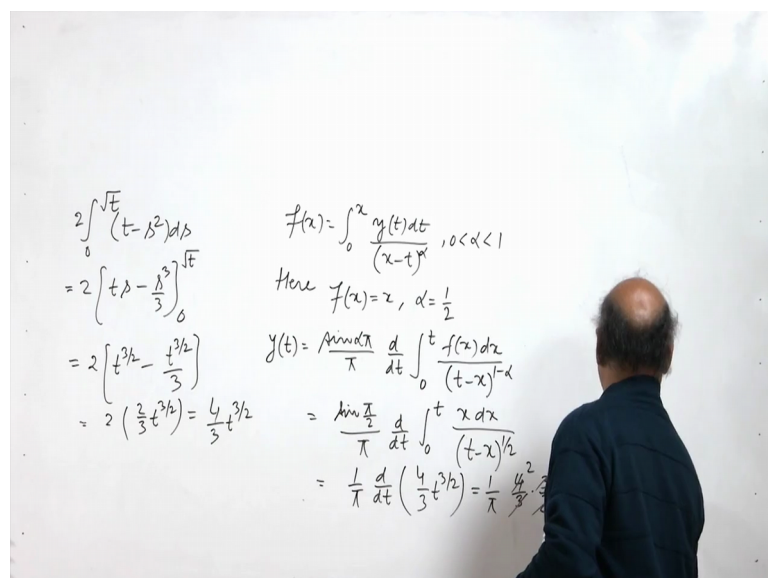 2∫₀^√t (t-s²)ds
= 2[ts - s³/3]₀^√t
= 2[t^3/2 - t^3/2/3]
= 2(2/3 t^3/2) = 4/3 t^3/2
f(x) = ∫₀^x y(t)dt/(x-t)^α , 0<α<1
Here f(x)=x, α=1/2
y(t) = sinαπ/π d/dt ∫₀^t f(x)dx/(t-x)^1-α
= sin π/2/π d/dt ∫₀^t x dx/(t-x)^1/2
= 1/π d/dt (4/3 t^3/2) = 1/π 4/3 2 ·